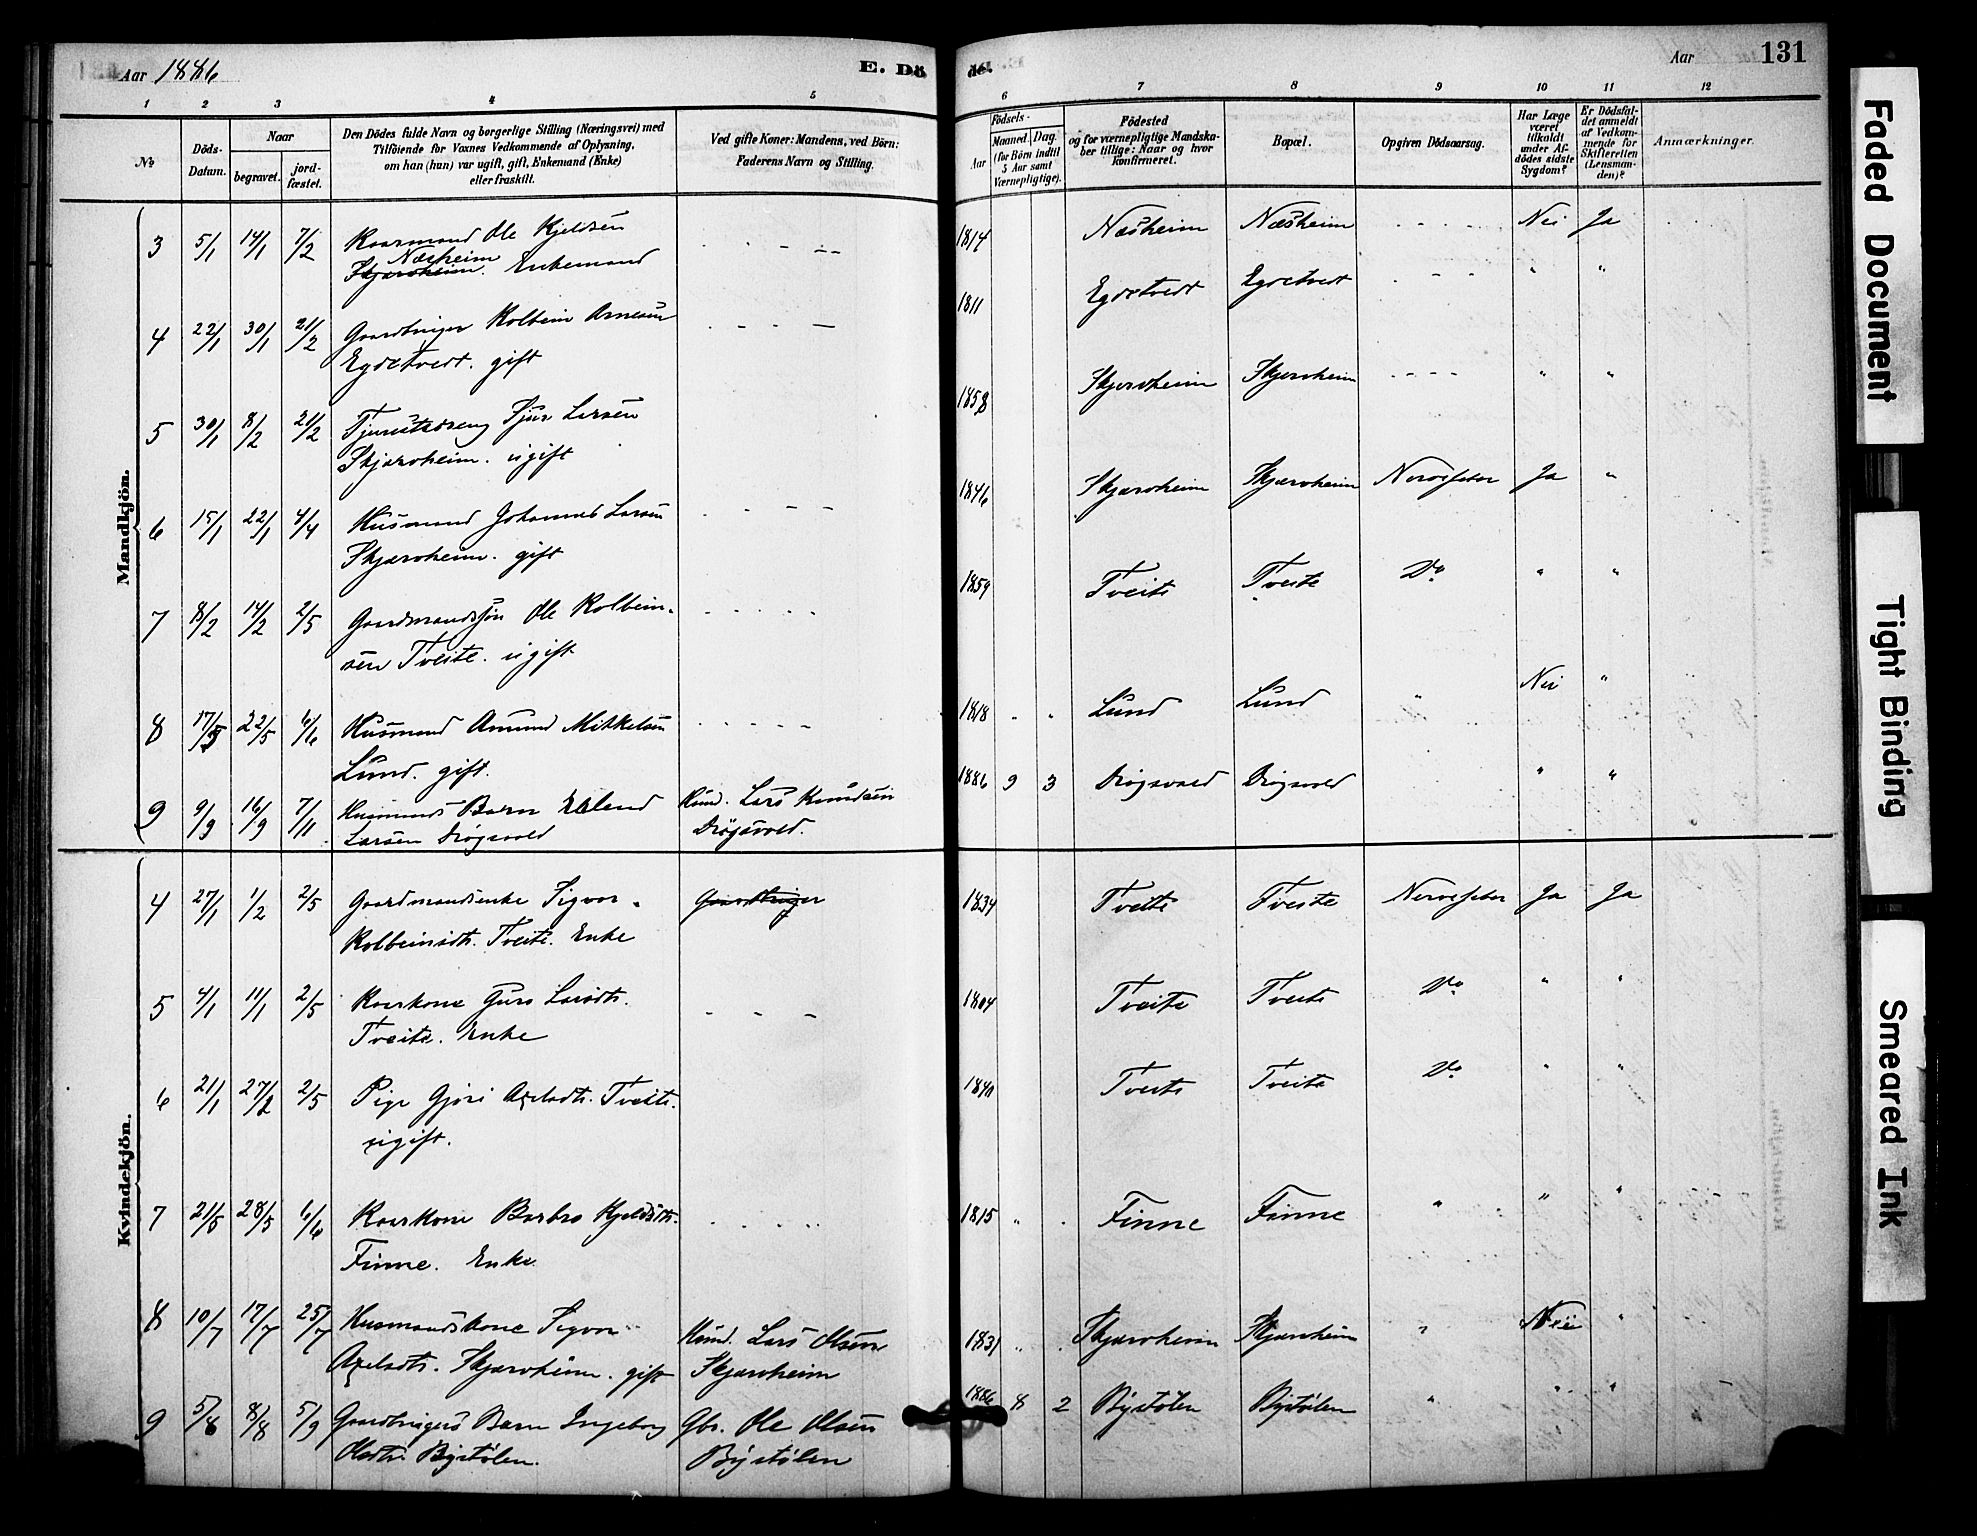 Aar 1886
E. Dö
de.
Aar
131
1 2 3 4 5 6 7 8 9 10 11 12
No
Döds-
Datum.
Naar
begravet.
jord-
fæstet.
Den Dödes fulde Navn og borgerlige Stilling (Næringsvei) med
Tilföiende for Voxnes Vedkommende af Oplysning,
om han (hun) var ugift, gift, Enkemand (Enke)
eller fraskilt.
Ved gifte Koner: Mandens, ved Börn:
Faderens Navn og Stilling.
Födsels-
Aar
Maaned. Dag.
(for Börn indtil
5 Aar samt
Værnepligtige).
Födested
og for værnepligtige Mandska-
ber tillige: Naar og hvor
konfirmeret.
Bopæl.
Opgiven Dödsaarsag.
Har Læge
været
tilkaldt
under Af-
dödes sidste
Sygdom?
Er Dödsfal-
det anmeldt
af Vedkom-
mende for
Skifteretten
(Lensman-
den)?
Anmærkninger.
Mandkjön.
3 5/1 14/1 7/2 Kaarmand Ole Kjeldsen - - - 1814 Næsheim Næsheim - - - - Nei Ja
Næsheim
Skjærvheim. Enkemand
4 22/1 30/1 21/2 Gaardbruger Kolbein Arnesen - - - - 1811 Egdetvedt Egdetvedt - - - " "
Egdetvedt. gift
5 30/1 8/2 21/2 Tjenestedreng Sjur Larsen 1858 Skjervheim Skjervheim - - - - " "
Skjærvheim. ugift
6 15/1 22/1 4/4 Husmand Johannes Larsen - - - - 1846 Skjærvheim Skjærvheim Nervefeber Ja "
Skjærvheim. gift
7 8/2 14/2 2/5 Gaardmandssøn Ole Kolbein- - - - - - 1859 Tveite Tveite Do " "
sen Tveite. ugift
8 17/5 22/5 6/6 Husmand Amund Mikkelsen - - - - - 1818 " " Lund Lund " Nei "
Lund. gift.
9 9/9 16/9 7/11 Husmands Barn Erlend Hmd. Lars Knudsen 1886 9 3 Drøgsvold Drøgsvold " "
Larsen Drøgsvold Drøgsvold.
Kvindekjön.
4 27/1 1/2 2/5 Gaardmandsenke Sigvor Gaardbruger 1834 Tveite Tveite Nervefeber Ja Ja
Kolbeinsdtr. Tveite. Enke
5 4/1 11/1 2/5 Kaarkone Guro Larsdtr. - - - 1804 Tveite Tveite Do " "
Tveite. Enke
6 21/1 27/2 2/5 Pige Gjøri Axelsdtr. Tveite. 1840 Tveite Tveite Do " "
ugift.
7 21/5 28/5 6/6 Kaarkone Barbro Kjeldsdtr. - - - - 1815 " " Finne Finne " " "
Finne. Enke
8 10/7 17/7 25/7 Husmandskone Sigvor Hmd. Lars Olsen 1831 " " Skjærvheim Skjærvheim " Nei "
Axelsdtr. Skjærvheim. gift Skjærvheim
9 5/8 8/8 5/9 Gaardbrugers Barn Ingeborg Gbr. Ole Olsen 1886 8 2 Bystølen Bystølen " " "
Olsdtr. Bystølen. Bystølen
Faded Document
Tight Binding
Smeared Ink